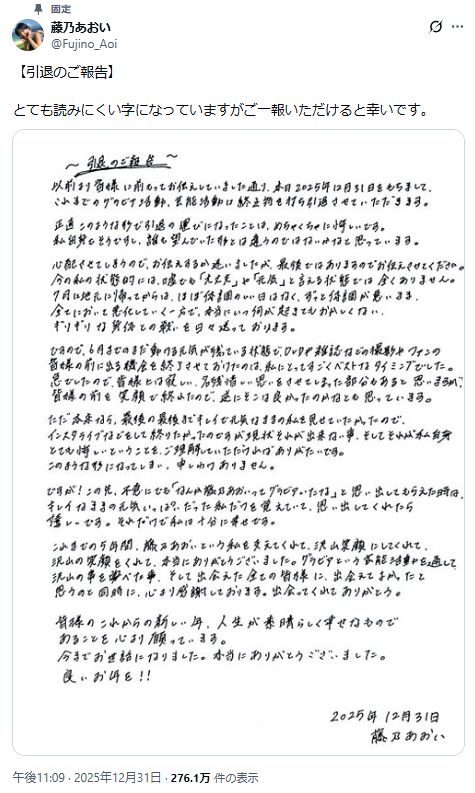 固定
藤乃あおい
@Fujino_Aoi
【引退のご報告】
とても読みにくい字になっていますがご一報いただけると幸いです。
～引退のご報告～
以前より皆様に前もってお伝えしていました通り、本日2025年12月31日をもちまして、
これまでのグラビア活動、芸能活動は終止符を打ち引退させていただきます。
正直このような形で引退の運びになったことは、めちゃくちゃに悔しいです。
私自身もそうですし、誰も望んでいた形とは違うのではないかなと思っています。
心配させてしまうので、お伝えするか迷いましたが、最後ではありますのでお伝えさせてください。
今の私の状態的には、嘘でも「大丈夫」や「元気」と言える状態では全くありません。
7月に地元に帰ってからは、ほぼ体調のいい日はなく、ずっと体調が悪いまま、
全てにおいて悪化していく一方で、本当にいつ何が起きてもおかしくない、
ギリギリな身体との戦いを日々送っております。
ですので、6月までのまだ動ける元気が残っている状態で、DVDや雑誌などの撮影やファンの
皆様の前に出る機会を終了させておけたのは、私にとってすごくベストなタイミングでした。
急でしたので、皆様には寂しい、名残惜しい思いをさせてしまった部分もあると思いますが、
皆様の前を笑顔で終われたので、逆にそこは良かったのかなとも思っています。
ただ本来なら、最後の最後までキレイで元気なままの私を見せていたかったので、
インスタライブなどをして終りたかったのですが現状それが出来ない事、そしてそれが私自身
とても悔しいということを、ご理解していただければありがたいです。
このような形になってしまい、申しわけありません。
ですが！この先、不意にでも「なんか藤乃あおいってグラビアいたな」と思い出してもらえた時は、
キレイなままの元気いっぱいだった私だけを覚えていて、思い出してくれたら
嬉しいです。それだけで私は十分に幸せです。
これまでの5年間、藤乃あおいという私を支えてくれて、沢山笑顔にしてくれて、
沢山の笑顔をくれて、本当にありがとうございました。グラビアという芸能活動を通して
沢山の事を学べた事、そして出会えた全ての皆様に、出会えてよかったと
思うのと同時に、心より感謝しております。出会ってくれてありがとう。
皆様のこれからの新しい年、人生が素晴らしく幸せなもので
あることを心より願っています。
今までお世話になりました。本当にありがとうございました。
良いお年を！！
2025年12月31日
藤乃あおい
午後11:09 · 2025年12月31日 · 276.1万 件の表示